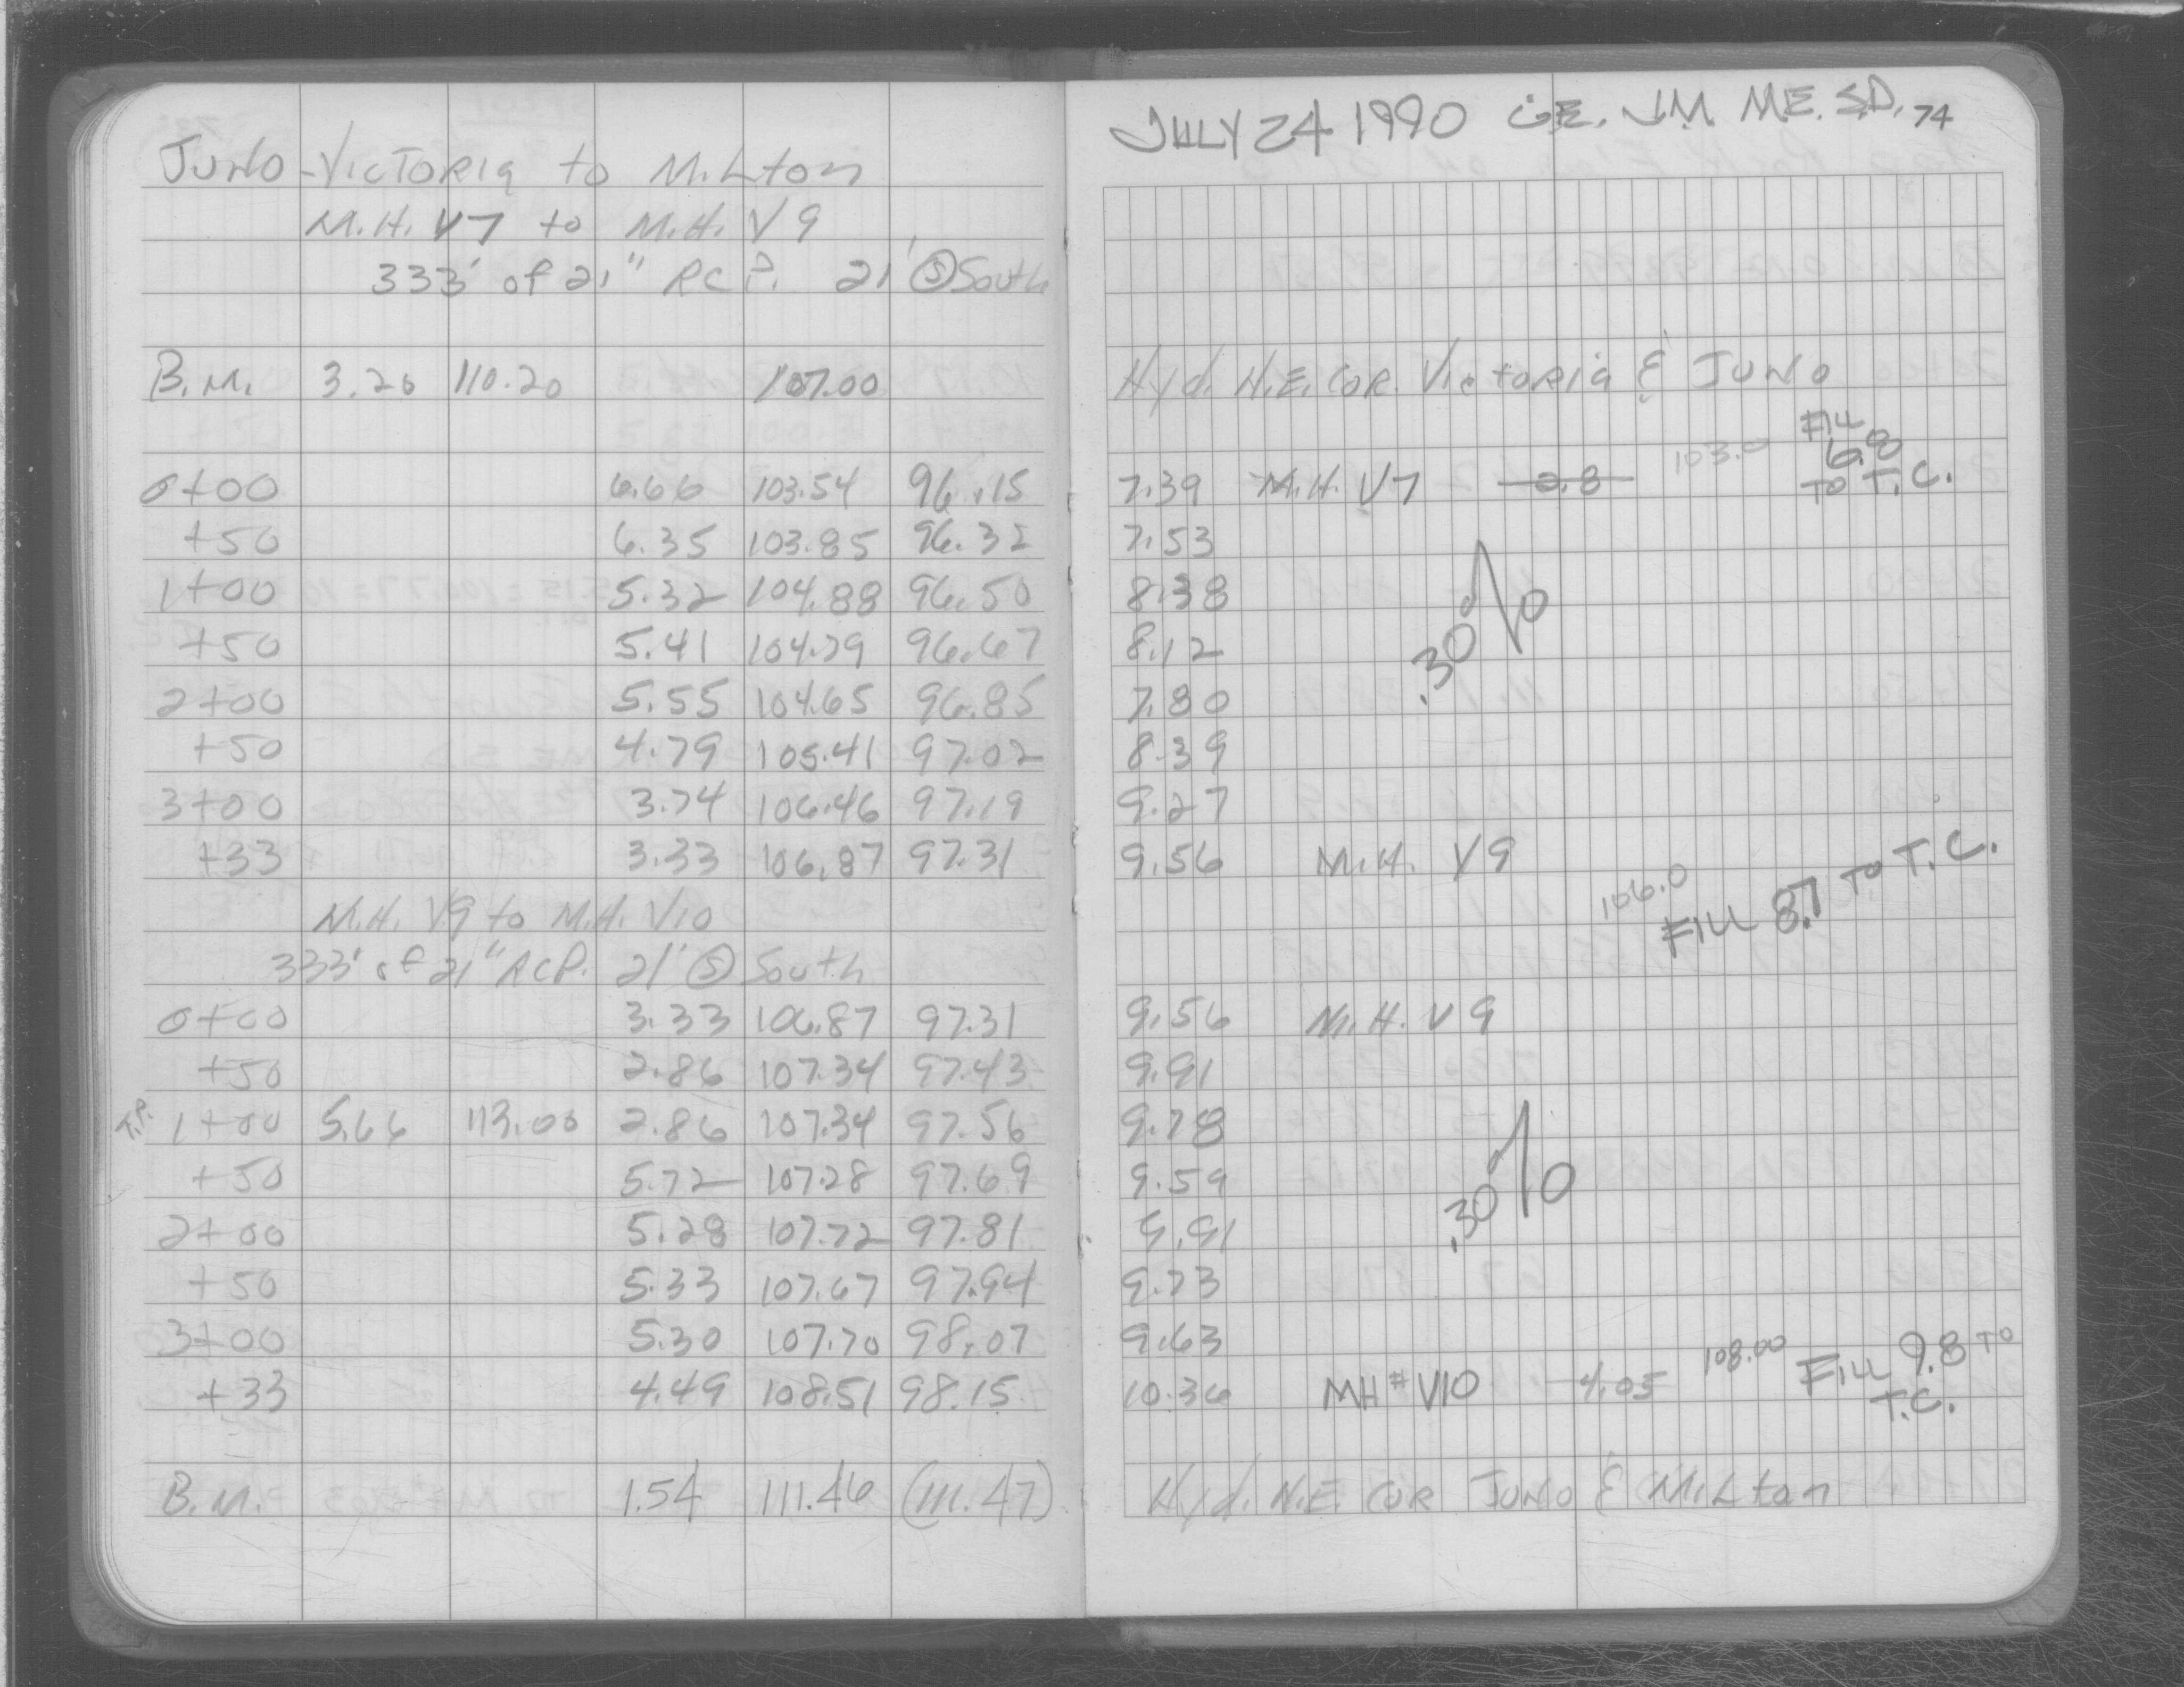 JUNO - VICTORIA to MILton
M.H. V7 to M.H. V9
333' of 21" RCP. 21' Ⓢ South
B.M. 3.20 110.20 107.00
0+00 6.66 103.54 96.15
+50 6.35 103.85 96.32
1+00 5.32 104.88 96.50
+50 5.41 104.79 96.67
2+00 5.55 104.65 96.85
+50 4.79 105.41 97.02
3+00 3.74 106.46 97.19
+33 3.33 106.87 97.31
M.H. V9 to M.H. V10
333' of 21" RCP. 21' Ⓢ South
0+00 3.33 106.87 97.31
+50 2.86 107.34 97.43
T.P. 1+00 5.66 113.00 2.86 107.34 97.56
+50 5.72 107.28 97.69
2+00 5.28 107.72 97.81
+50 5.33 107.67 97.94
3+00 5.30 107.70 98.07
+33 4.49 108.51 98.15
B.M. 1.54 111.46 (111.47)
JULY 24 1990 G.E. J.M. M.E. S.D. 74
Hyd. N.E. COR. Victoria & JUNO
7.39 M.H. V7 2.8 103.0 FILL 6.8 TO T.C.
7.53
8.38
8.12
.30%
7.80
8.39
9.27
9.56 M.H. V9
106.0 FILL 8.7 TO T.C.
9.56 M.H. V9
9.91
9.78
9.59
.30%
9.91
9.73
9.63
10.36 MH # V10 4.05 108.00 FILL 9.8 TO T.C.
Hyd. N.E. COR JUNO & MILton